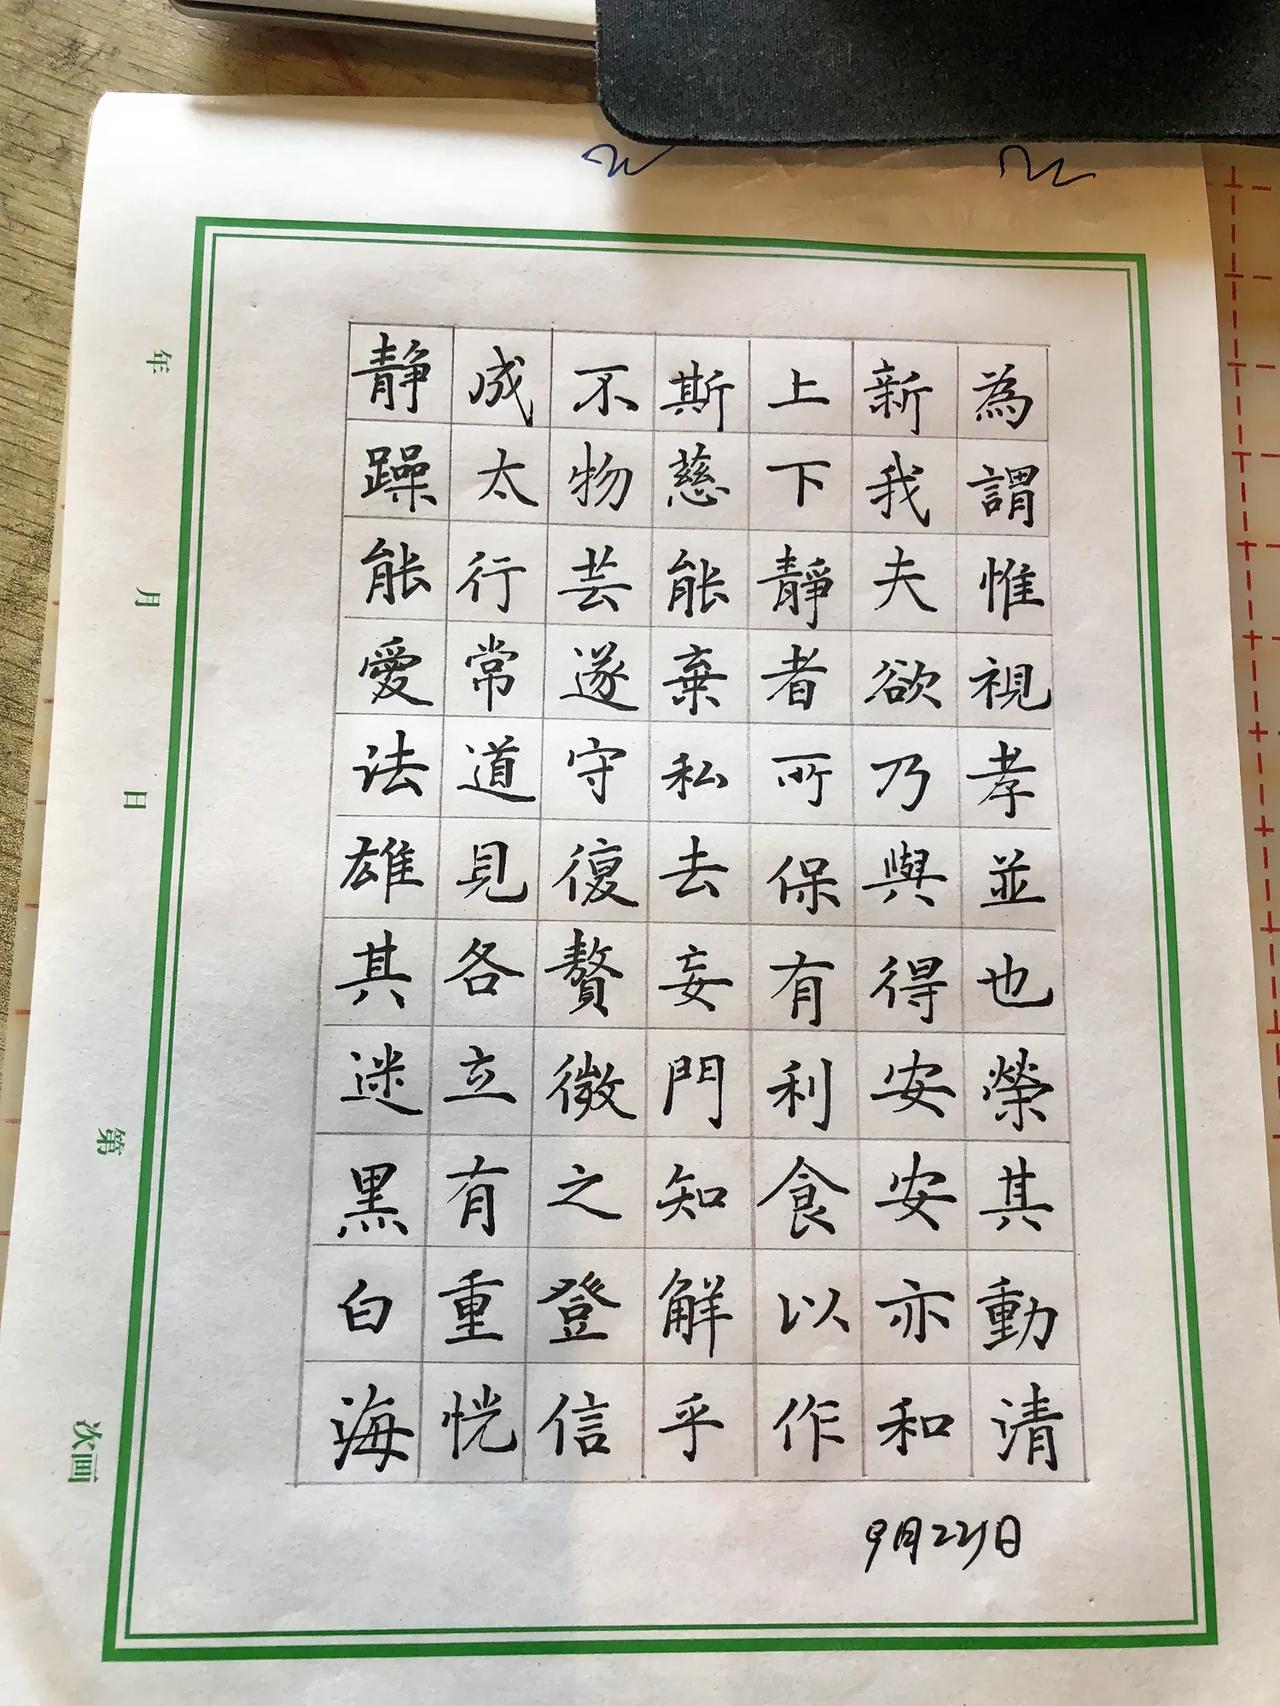 為謂惟視孝並也榮其動清
新我夫欲乃與得安安亦和
上下靜者所保有利食以作
斯慈能棄私去妄門知解乎
不物芸遂守復贅微之登信
成太行常道見各立有重恍
静躁能愛法雄其迷黑白海
9月22日
年 月 日 第 次画